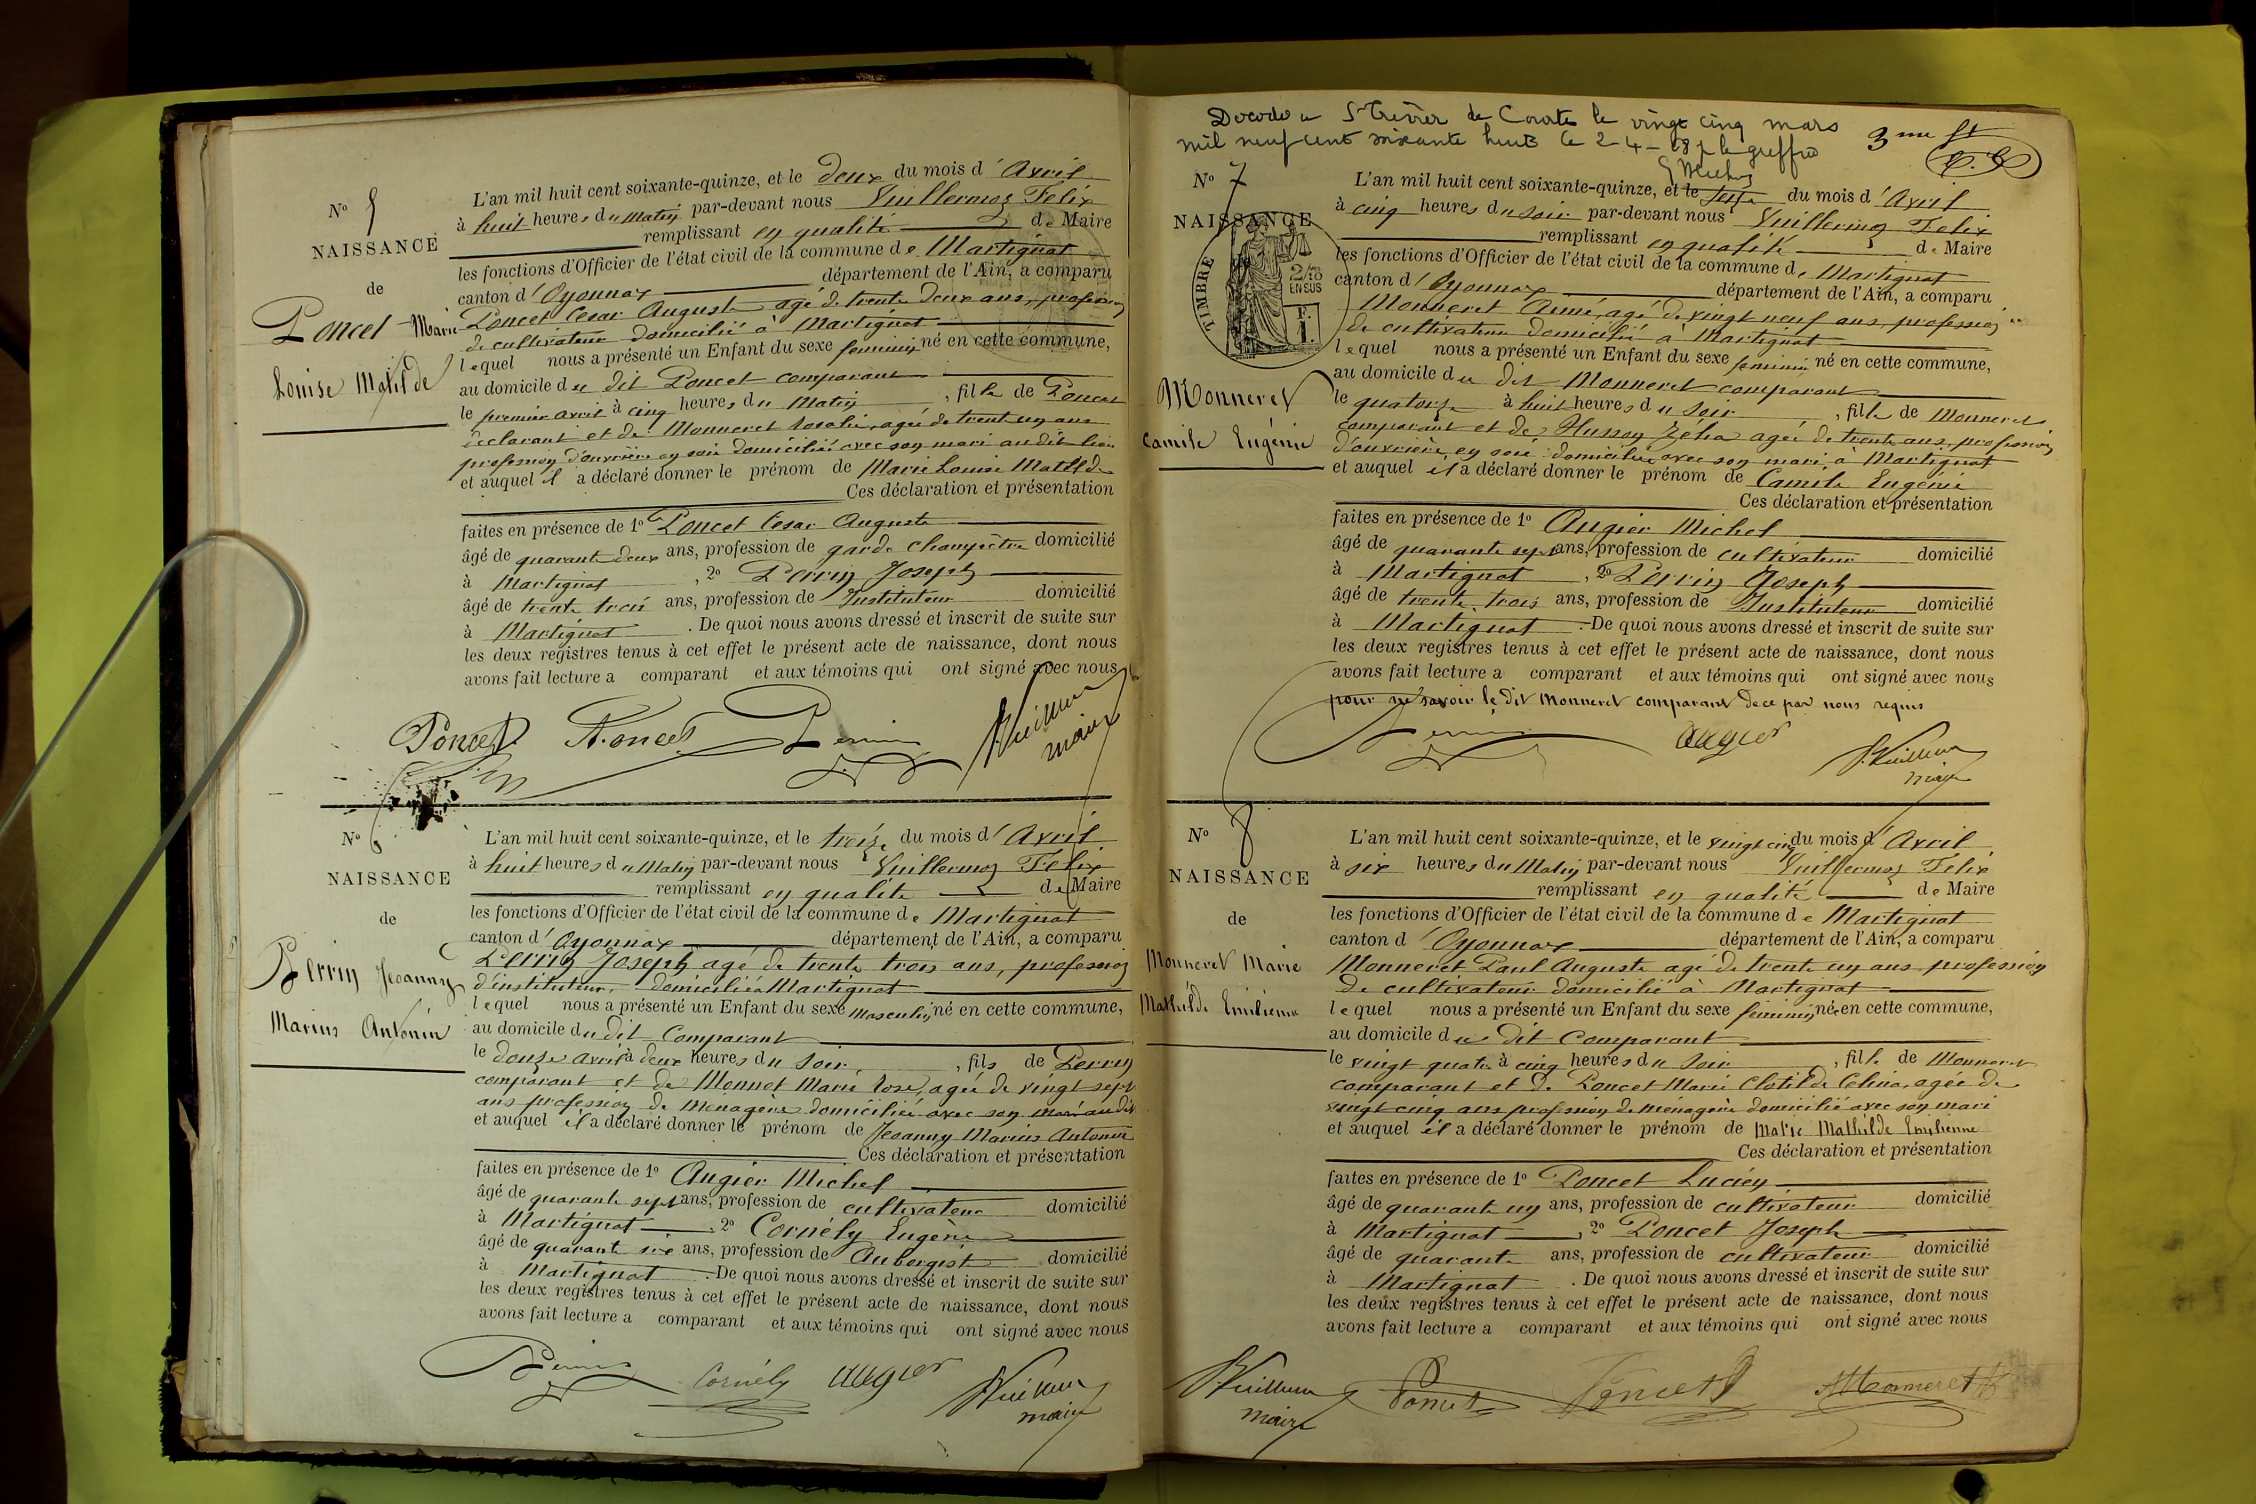 N° 5
NAISSANCE
de
Poncet Marie
Louise Matilde
L'an mil huit cent soixante-quinze, et le deux du mois d'Avril
à huit heures du Matin par-devant nous Vuillermoz Felix
remplissant en qualité de Maire
les fonctions d'Officier de l'état civil de la commune de Martignat
canton d'Oyonnax département de l'Ain, a comparu
Poncet Cesar Auguste agé de trente deux ans, profession
de cultivateur domicilié à Martignat
lequel nous a présenté un Enfant du sexe feminin né en cette commune,
au domicile du dit Poncet comparant
le premier avril à cinq heures du Matin, fille de Poncet
declarant et de Monneret Rosalie, agée de trent un ans
profession d'ouvrière en soie domicilié avec son mari au dit lieu
et auquel il a déclaré donner le prénom de Marie Louise Matilde
Ces déclaration et présentation
faites en présence de 1° Poncet Cesar Auguste
âgé de quarante deux ans, profession de garde champêtre domicilié
à Martignat, 2° Perrin Joseph
âgé de trente trois ans, profession de Instituteur domicilié
à Martignat. De quoi nous avons dressé et inscrit de suite sur
les deux registres tenus à cet effet le présent acte de naissance, dont nous
avons fait lecture a comparant et aux témoins qui ont signé avec nous
Poncet A. Poncet Perrin F. Vuillermoz
maire
N° 6
NAISSANCE
de
Perrin Jeoanny
Marius Antonin
L'an mil huit cent soixante-quinze, et le treize du mois d'Avril
à huit heures du Matin par-devant nous Vuillermoz Felix
remplissant en qualité de Maire
les fonctions d'Officier de l'état civil de la commune de Martignat
canton d'Oyonnax département de l'Ain, a comparu
Perrin Joseph agé de trente trois ans, profession
d'instituteur, domicilié à Martignat
lequel nous a présenté un Enfant du sexe Masculin né en cette commune,
au domicile du dit Comparant
le douze avril à deux heures du Soir, fils de Perrin
comparant et de Monnet Marie Rose, agée de vingt sept
ans profession de Menagère domicilié avec son mari au dit
et auquel il a déclaré donner le prénom de Jeoanny Marius Antonin
Ces déclaration et présentation
faites en présence de 1° Augier Michel
âgé de quarante sept ans, profession de cultivateur domicilié
à Martignat, 2° Cornély Eugène
âgé de quarante six ans, profession de Aubergiste domicilié
à Martignat. De quoi nous avons dressé et inscrit de suite sur
les deux registres tenus à cet effet le présent acte de naissance, dont nous
avons fait lecture a comparant et aux témoins qui ont signé avec nous
Perrin Cornély Augier F. Vuillermoz
maire
Décédée à St Trivier de Courtes le vingt cinq mars
mil neuf cent soixante huit le 2-4-68 le greffier
3me ft
N° 7
NAISSANCE
TIMBRE
2/10
EN SUS
F.
1.
Monneret
Camile Eugénie
L'an mil huit cent soixante-quinze, et le seize du mois d'Avril
à cinq heures du soir par-devant nous Vuillermoz Felix
remplissant en qualité de Maire
les fonctions d'Officier de l'état civil de la commune de Martignat
canton d'Oyonnax département de l'Ain, a comparu
Monneret Aimé, agé de vingt neuf ans, profession
de cultivateur domicilié à Martignat
lequel nous a présenté un Enfant du sexe feminin né en cette commune,
au domicile du dit Monneret comparant
le quatorze à huit heures du Soir, fille de Monneret
comparant et de Husson Zélia agée de trente ans, profession
d'ouvrière en soie domicilié avec son mari à Martignat
et auquel il a déclaré donner le prénom de Camile Eugénie
Ces déclaration et présentation
faites en présence de 1° Augier Michel
âgé de quarante sept ans, profession de cultivateur domicilié
à Martignat, 2° Perrin Joseph
âgé de trente trois ans, profession de Instituteur domicilié
à Martignat. De quoi nous avons dressé et inscrit de suite sur
les deux registres tenus à cet effet le présent acte de naissance, dont nous
avons fait lecture a comparant et aux témoins qui ont signé avec nous
pour ne savoir le dit Monneret comparant de ce par nous requis
Perrin Augier F. Vuillermoz
maire
N° 8
NAISSANCE
de
Monneret Marie
Mathilde Emilienne
L'an mil huit cent soixante-quinze, et le vingt cinq du mois d'Avril
à six heures du Matin par-devant nous Vuillermoz Felix
remplissant en qualité de Maire
les fonctions d'Officier de l'état civil de la commune de Martignat
canton d'Oyonnax département de l'Ain, a comparu
Monneret Paul Auguste agé de trente un ans profession
de cultivateur domicilié à Martignat
lequel nous a présenté un Enfant du sexe feminin née en cette commune,
au domicile du dit Comparant
le vingt quatre à cinq heures du Soir, fille de Monneret
comparant et de Poncet Marie Clotilde Celina, agée de
vingt cinq ans profession de ménagère domicilié avec son mari
et auquel il a déclaré donner le prénom de Marie Mathilde Emilienne
Ces déclaration et présentation
faites en présence de 1° Poncet Lucien
âgé de quarante un ans, profession de cultivateur domicilié
à Martignat, 2° Poncet Joseph
âgé de quarante ans, profession de cultivateur domicilié
à Martignat. De quoi nous avons dressé et inscrit de suite sur
les deux registres tenus à cet effet le présent acte de naissance, dont nous
avons fait lecture a comparant et aux témoins qui ont signé avec nous
F. Vuillermoz Poncet Poncet Monneret
maire